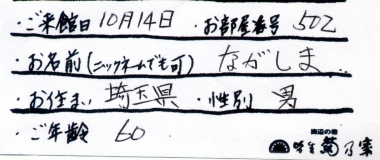 ・ご来館日 10月14日 ・お部屋番号 502
・お名前(ニックネームでも可) ながしま
・お住まい 埼玉県 ・性別 男
・ご年齢 60
海辺の宿